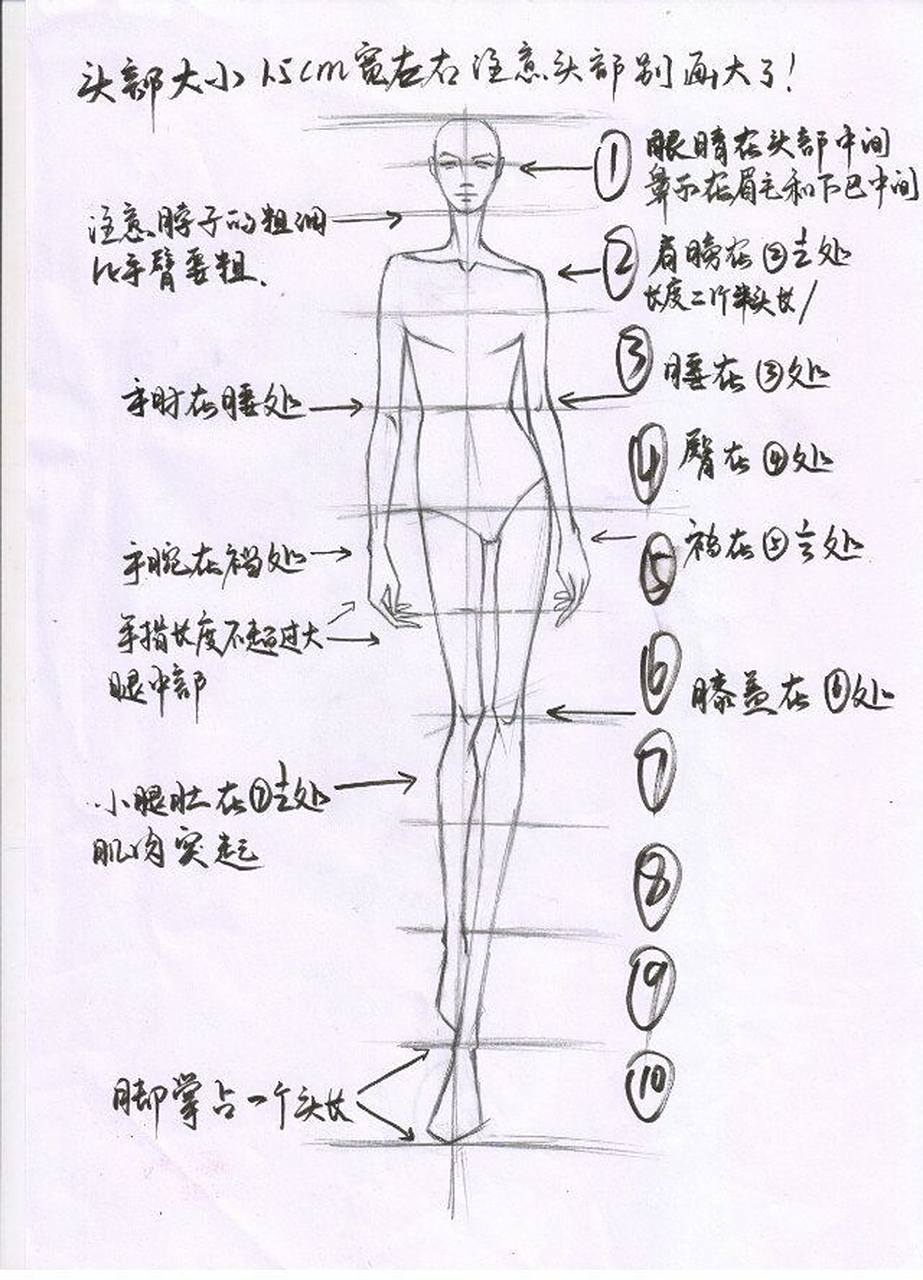 头部大小1.5cm宽左右 注意头部别画大了!
① 眼睛在头部中间
鼻子在眉毛和下巴中间
注意脖子的粗细
比手臂要粗.
② 肩膀在②1/2处
长度二个半头长
③ 腰在③处
手肘在腰处
④ 臀在④处
⑤ 裆在⑤处
手腕在裆处
手指长度不超过大
腿中部
⑥ 膝盖在⑥处
⑦
小腿肚在⑦1/2处
肌肉突起
⑧
⑨
⑩
脚掌占一个头长